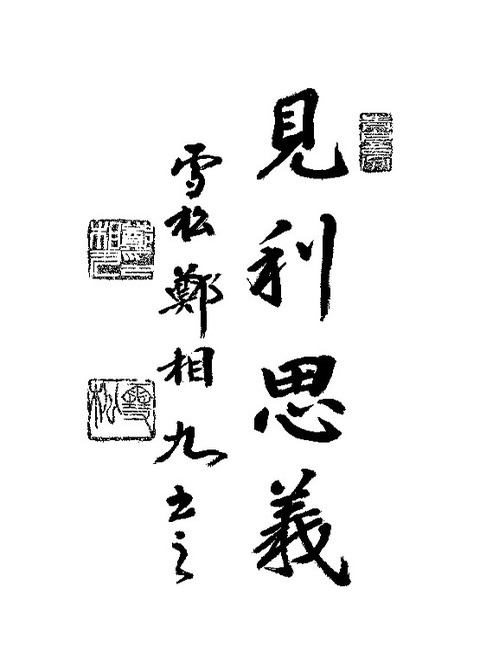 見利思義
雪松 鄭相九 書之
雪松